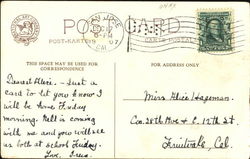 POST CARD
POST-KARTE
07
CAL
THIS SPACE MAY BE USED FOR
CORRESPONDENCE
FOR ADDRESS ONLY
Dearest Alice:- Just a
card to let you know I
will be home Friday
morning. Nell is coming
with me and you will see
us both at school Friday.
Love, Irene.
Miss Alice Hageman.
Cor. 28th Ave & E. 12th St.
Fruitvale, Cal.